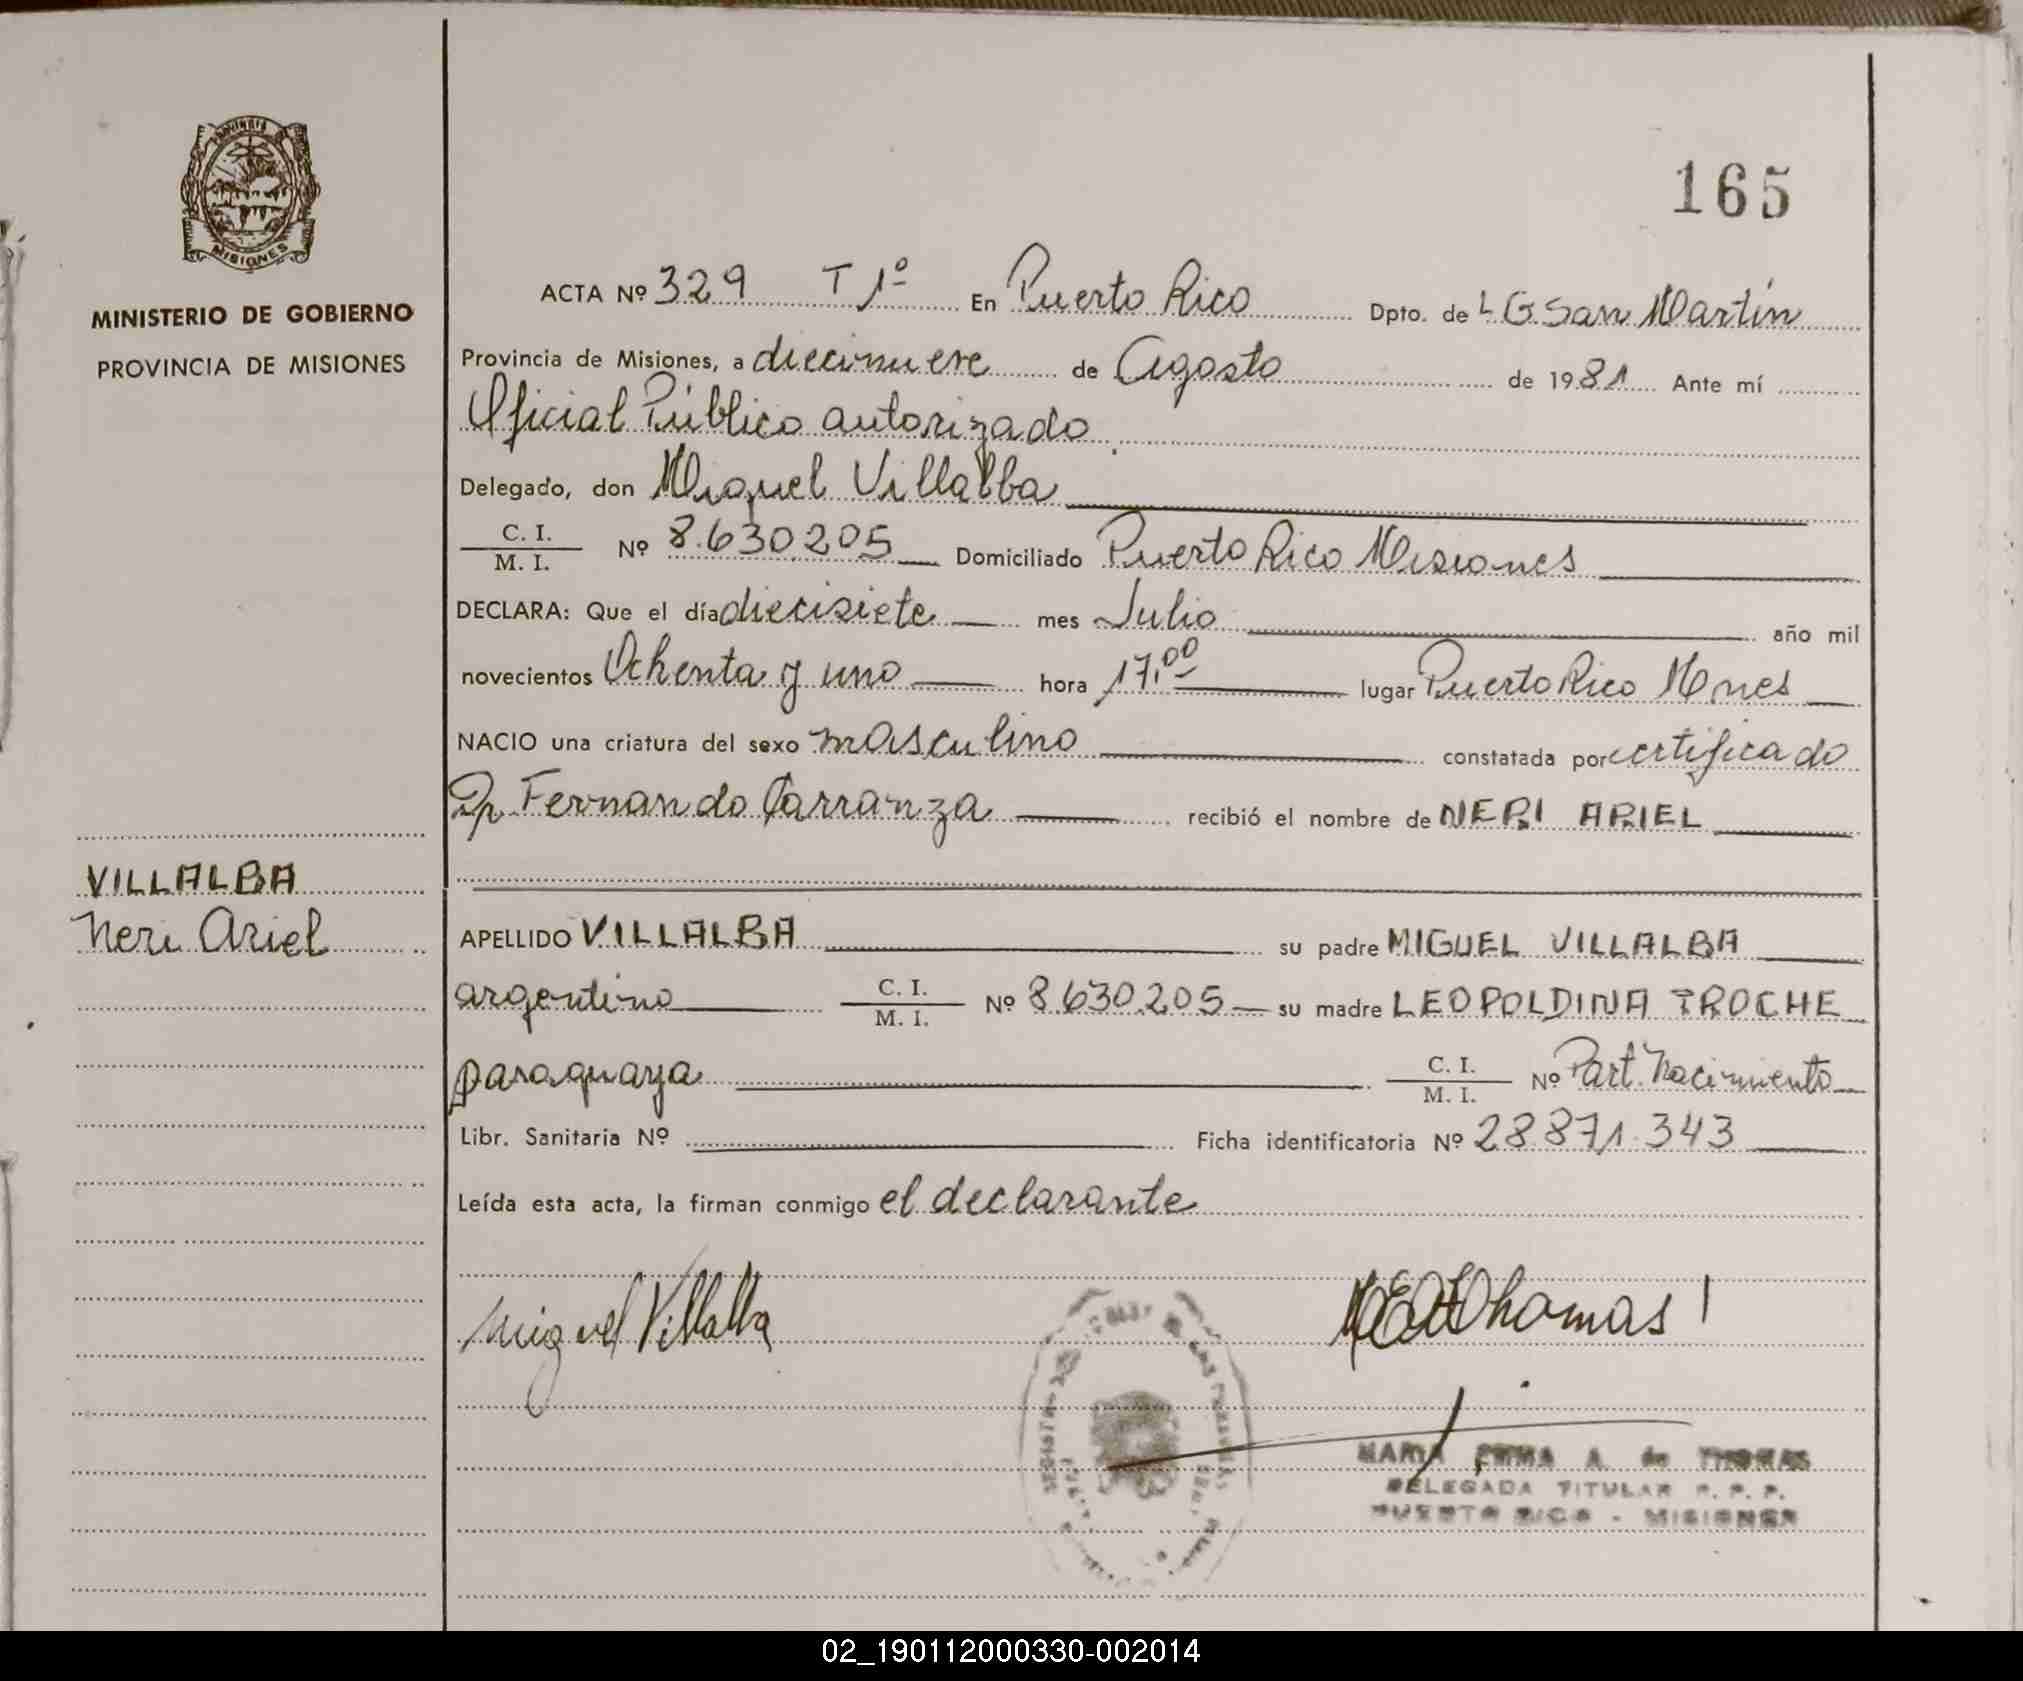 PROVINCIA
MISIONES
MINISTERIO DE GOBIERNO
PROVINCIA DE MISIONES
VILLALBA
Neri Ariel
165
ACTA Nº 329 T 1º En Puerto Rico Dpto. de L G San Martín
Provincia de Misiones, a diecinueve de Agosto de 1981 Ante mí
Oficial Público autorizado
Delegado, don Miguel Villalba
C. I.
M. I. Nº 8.630.205 Domiciliado Puerto Rico Misiones
DECLARA: Que el día diecisiete mes Julio año mil
novecientos Ochenta y uno hora 17.00 lugar Puerto Rico Mnes
NACIO una criatura del sexo masculino constatada por certificado
Dr. Fernando Carranza recibió el nombre de NERI ARIEL
APELLIDO VILLALBA su padre MIGUEL VILLALBA
argentino C. I. M. I. Nº 8.630.205 su madre LEOPOLDINA TROCHE
paraguaya C. I. M. I. Nº Part. Nacimiento
Libr. Sanitaria Nº Ficha identificatoria Nº 28.871.343
Leída esta acta, la firman conmigo el declarante
Miguel Villalba
Thomas
MARIA EMMA A. de THOMAS
DELEGADA TITULAR R. P. P.
PUERTO RICO - MISIONES
02_190112000330-002014